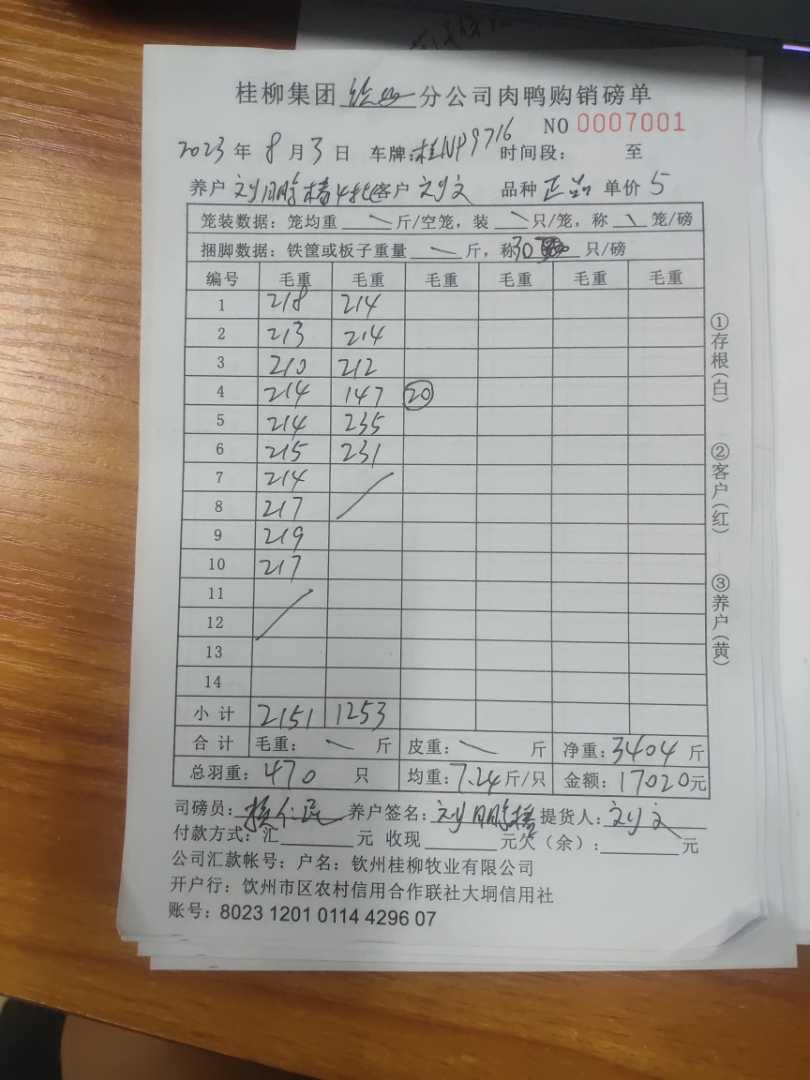 桂柳集团 分公司肉鸭购销磅单
NO 0007001
2023 年 8 月 3 日 车牌:桂NP9716 时间段: 至
养户 刘鹏 客户 刘文 品种 正品 单价 5
笼装数据: 笼均重 ╲ 斤/空笼, 装 ╲ 只/笼, 称 ╲ 笼/磅
捆脚数据: 铁筐或板子重量 ╲ 斤, 称 30 只/磅
编号 毛重 毛重 毛重 毛重 毛重 毛重
1 218 214
2 213 214
3 210 212
4 214 147 20
5 214 235
6 215 231
7 214
8 217
9 219
10 217
11
12
13
14
小计 2151 1253
合计 毛重: ╲ 斤 皮重: ╲ 斤 净重: 3404 斤
总羽重: 470 只 均重: 7.24 斤/只 金额: 17020元
司磅员: 养户签名: 刘鹏 提货人: 刘文
付款方式: 汇 元 收现 元欠(余): 元
公司汇款帐号: 户名: 钦州桂柳牧业有限公司
开户行: 钦州市区农村信用合作联社大垌信用社
账号: 8023 1201 0114 4296 07
①存根(白)
②客户(红)
③养户(黄)